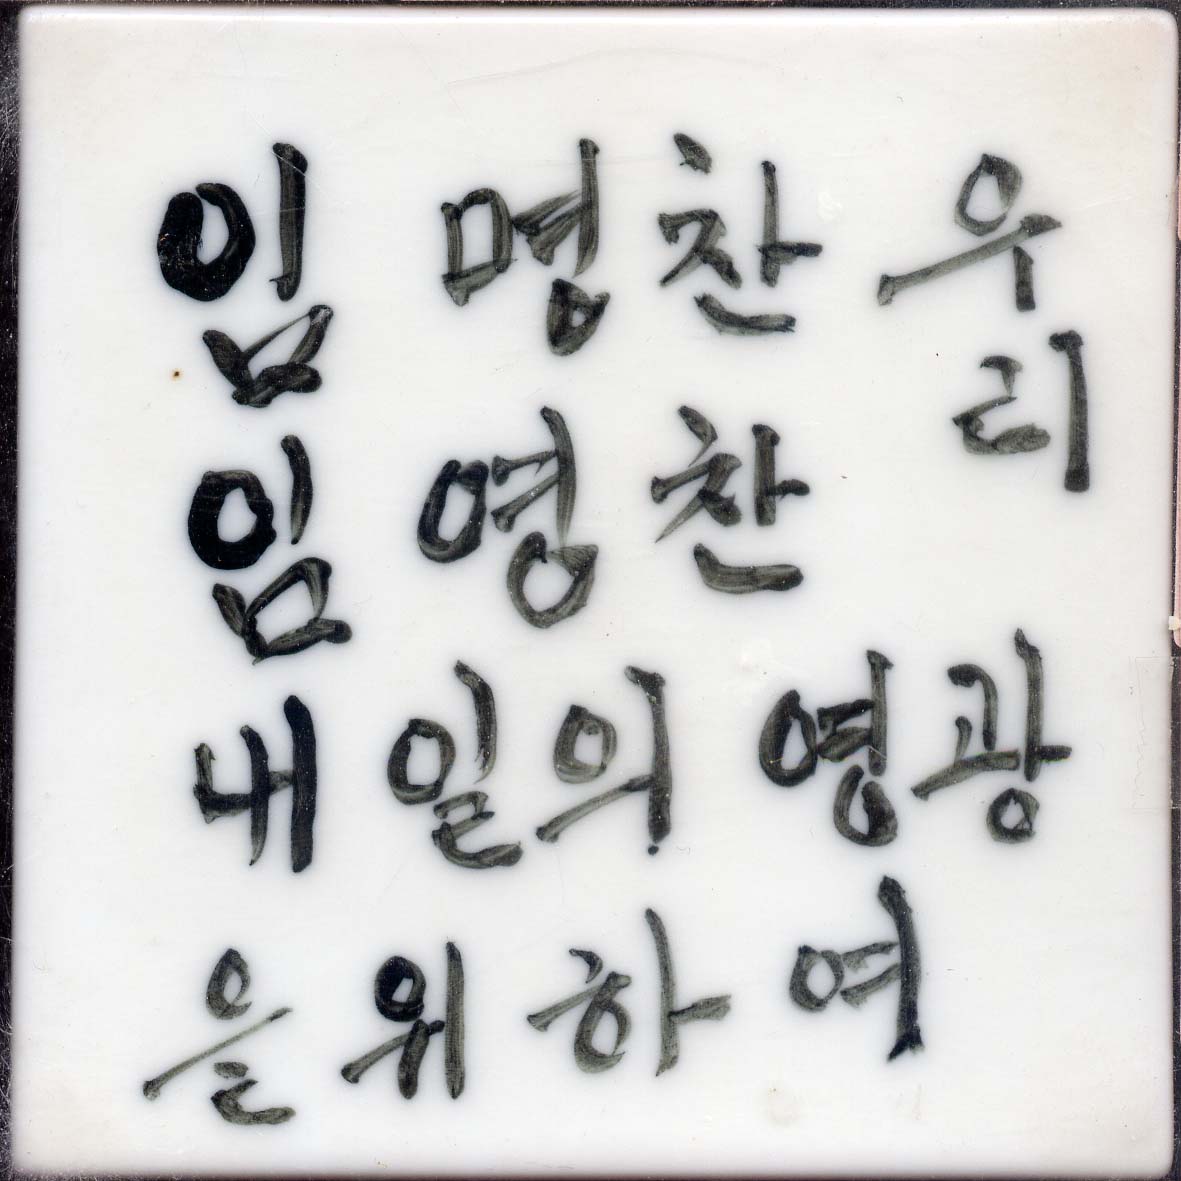 임 명찬 우
리
임 영찬
내일의 영광
을 위하여